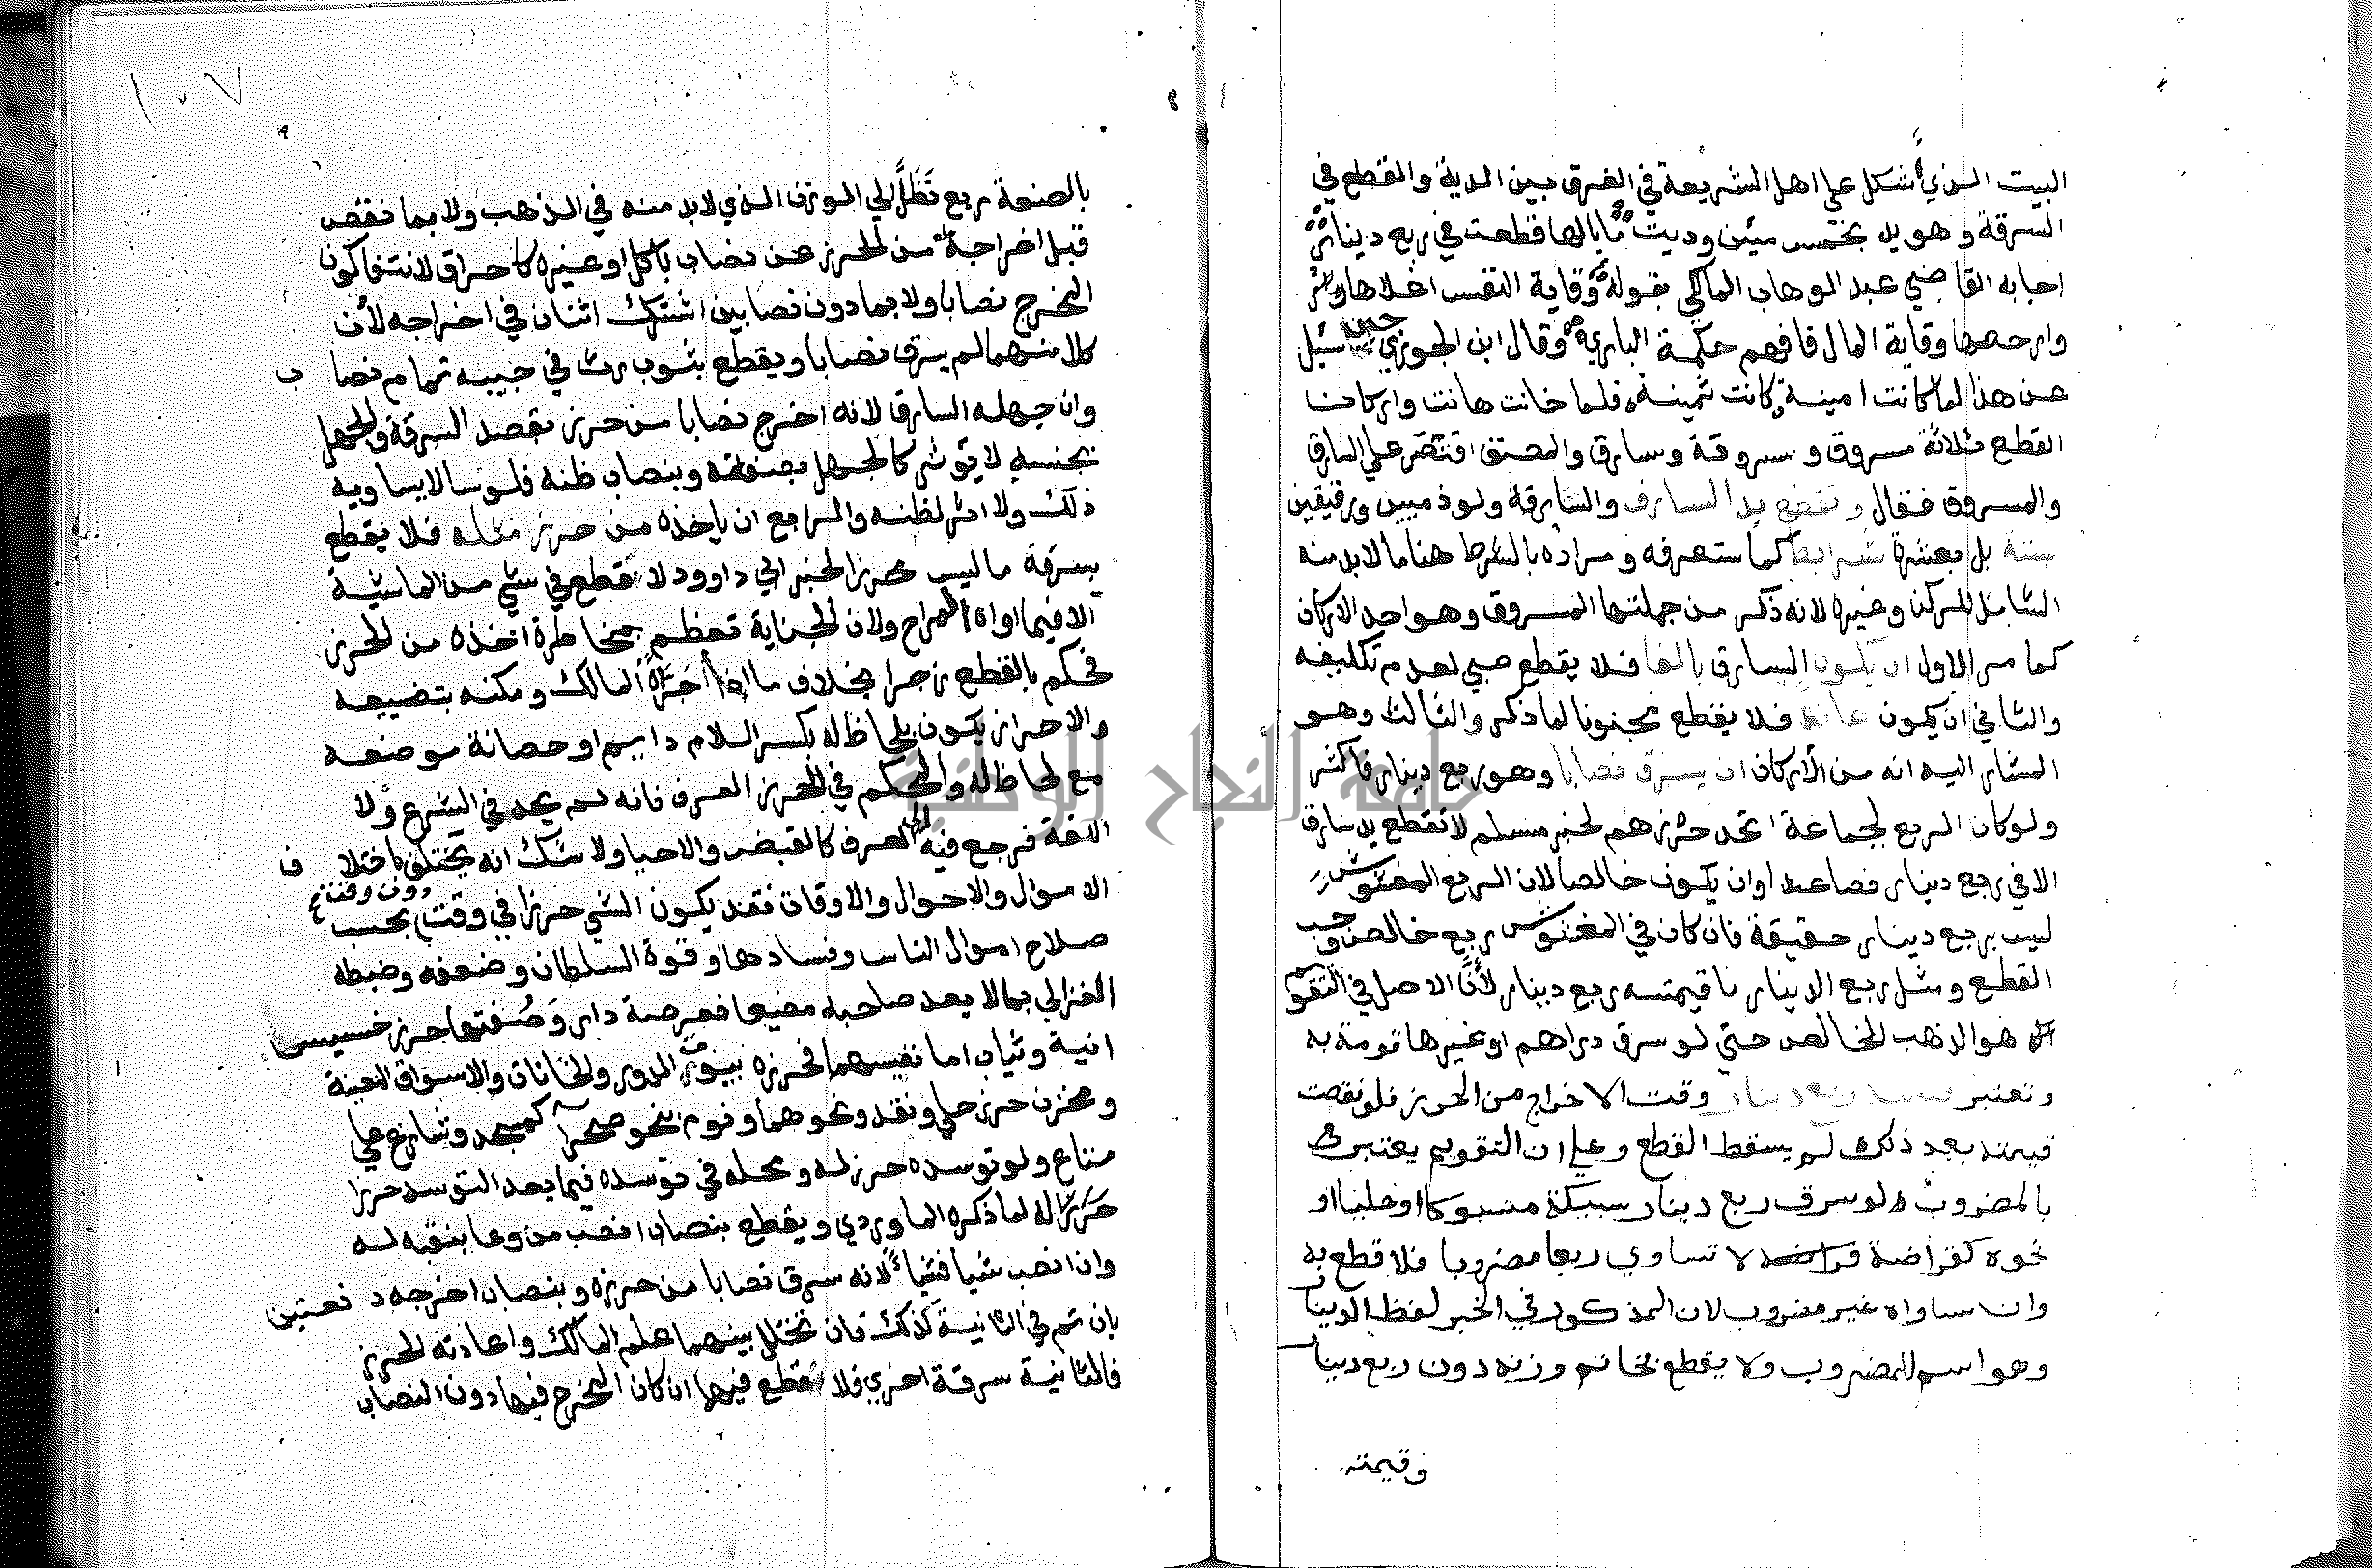 البيت الذي أشكل على اهل الشريعة في الفرق بين الدية والقطع في
السرقة وهو يد بخمس مئين وديت ما بالها قطعت في ربع دينار
اجابه القاضي عبد الوهاب المالكي بقوله وقاية النفس اغلاها
وارخصها وقاية المال فافهم حكمة الباري وقال ابن الجوزي حين سئل
عن هذا لما كانت امينة كانت ثمينة فلما خانت هانت واركان
القطع ثلاثة مسروق وسروقة وسارق والمصنف اقتصر على السارق
والمسروق فقال وتقطع يد السارق والسارقة ولو ذميين ورقيقين
ستة بل بعشرة شرايط كما ستعرفه ومراده بالشرط هنا ما لا بد منه
الشامل للركن وغيره لانه ذكر من جملتها المسروق وهو احد الاركان
كما مر الاول ان يكون السارق بالغا فلا يقطع صبي لعدم تكليفه
والثاني ان يكون عاقلا فلا يقطع مجنونا لما ذكر والثالث وهو
المشار اليه انه من الأركان ان يسرق نصابا وهو ربع دينار فاكثر
ولو كان الربع لجماعة اتحد حرزهم لخبر مسلم لا تقطع يد سارق
الا في ربع دينار فصاعدا وان يكون خالصا لان الربع المغشوش
ليس بربع دينار حقيقة فان كان في المغشوش ربع خالص وجب
القطع ومثل ربع الدينار ما قيمته ربع دينار لأن الاصل في التقو
هو الذهب الخالص حتى لو سرق دراهم او غيرها قومة به
وتعتبر ربع دينار وقت الاخراج من الحرز فلو نقصت
قيمته بعد ذلك لم يسقط القطع وعلى ان التقويم يعتبر
بالمضروب لو سرق ربع دينار سبيكة مسبوكا او حليا او
نحوه كقراضة لا تساوي ربعا مضروبا فلا قطع به
وان ساواه غير مضروب لان المذكور في الخبر لفظ الدينا
وهو اسم للمضروب ولا يقطع بخاتم وزنه دون ربع دينا
وقيمته
١٠٧
بالصنعة ربع نظرا الى الوزن الذي لا بد منه في الذهب ولا بما نقص
قبل اخراجه من الحرز عن نصاب باكل او غيره كاحراق لانتفا كون
المخرج نصابا ولا بما دون نصابين اشترك اثنان في اخراجه لأن
كلا منهما لم يسرق نصابا ويقطع بثوب رث في جيبه تمام نصاب
وان جهله السارق لانه اخرج نصابا من حرز بقصد السرقة والجهل
بجنسه لا يؤثر كالجهل بصفته وبنصاب ظنه فلوسا لا يساويه
ذلك ولا اثر لظنه والرابع ان ياخذه من حرز مثله فلا يقطع
بسرقة ما ليس محرزا لخبر ابي داوود لا تقطع في شئ من الماشية
الا فيما اواه المراح ولان الجناية تعظم بمخاطرة اخذه من الحرز
فحكم بالقطع زجرا بخلاف ما اذا جرأه المالك ومكنه بتضييعه
والاحراز يكون بلحاظ له بكسر اللام دايم او حصانة موضعه
مع لحاظ له والمحكم في الحرز العرف فانه لم يحد في الشرع ولا
اللغة فرجع فيه الى العرف كالقبض والاحيا ولا شك انه يختلف باختلاف
الاموال والاحوال والاوقات فقد يكون الشي حرزا في وقت دون وقت بحسب
صلاح اموال الناس وفسادها وقوة السلطان وضعفه وضبطه
الغزالي بما لا يعد صاحبه مضيعا فعرصة دار وصفتها حرز خسيس
انية وثياب اما نفيسهما فحرزه بيوت الدور والخانات والاسواق المنيعة
ومخزن حرز حلي ونقد ونحوهما ونوم بنحو صحرا كمسجد وشارع على
متاع ولو توسده حرز له ومحله في توسده فيما يعد التوسد حرزا
له لما ذكره الماوردي ويقطع بنصاب انصب من وعا بنقبه له
وان انصب شيا فشيا لانه سرق نصابا من حرزه وبنصاب اخرجه دفعتين
بان تم في الثانية كذلك فان تخلل بينهما علم المالك واعادته الحرز
فالثانية سرقة اخرى فلا تقطع فيها ان كان المخرج فيها دون النصاب
جامعة النجاح الوطنية